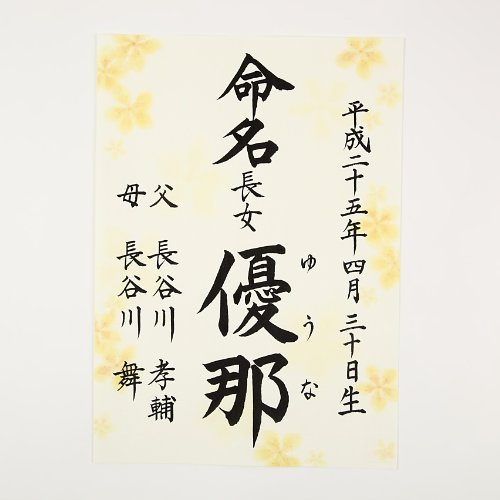 平成二十五年四月三十日生
命名
長女
優那
ゆうな
父 長谷川 孝輔
母 長谷川 舞